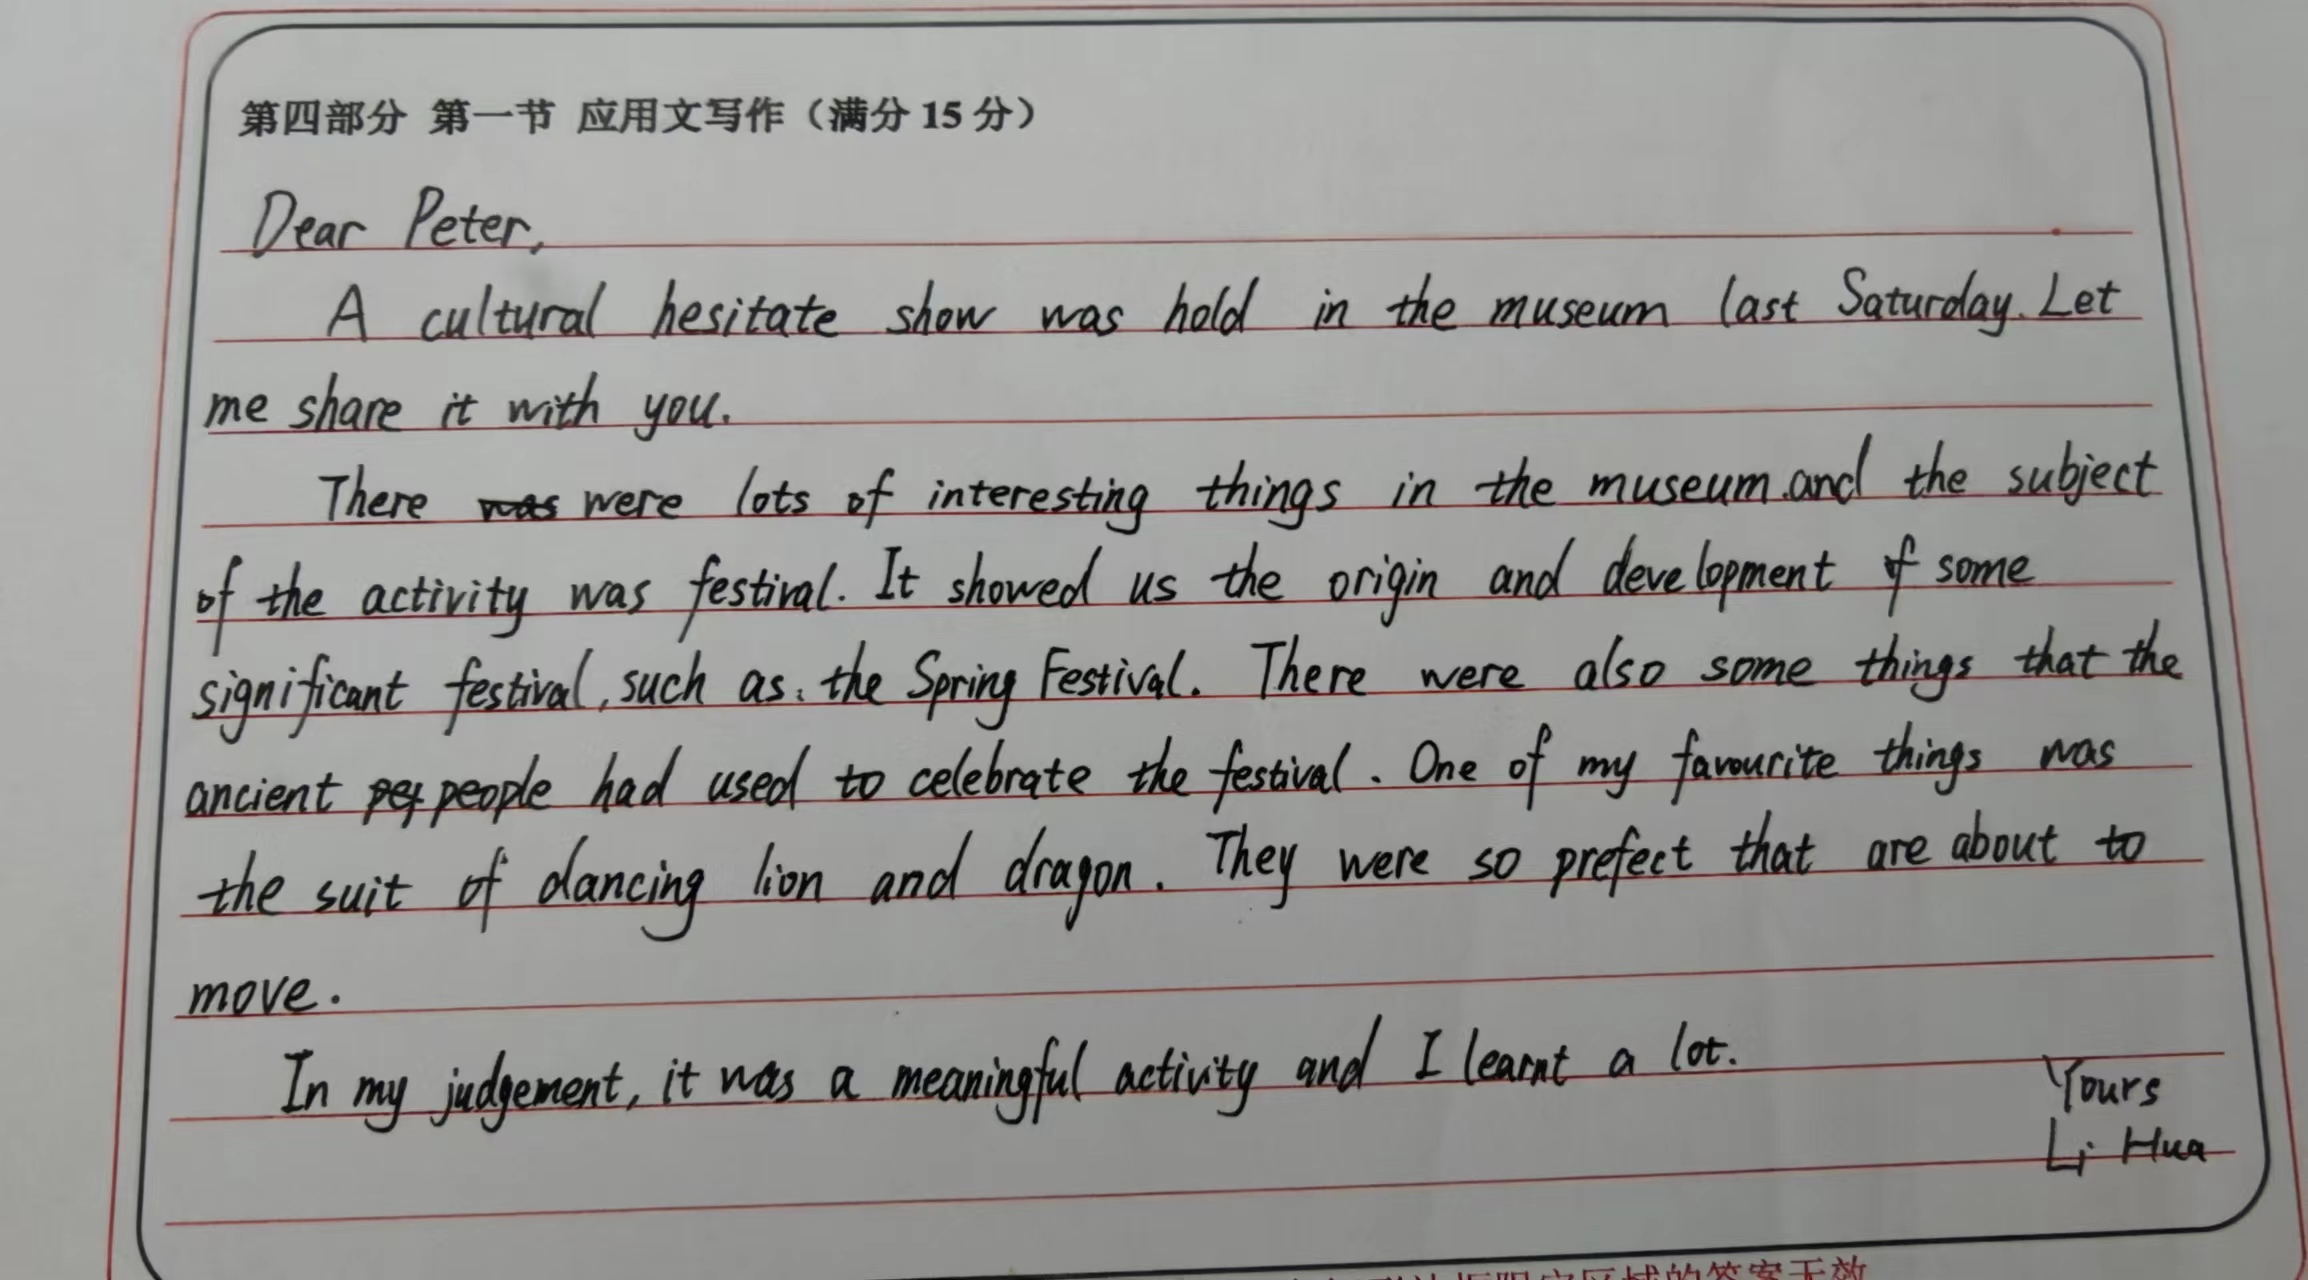 第四部分 第一节 应用文写作（满分 15 分）
Dear Peter,
A cultural hesitate show was hold in the museum last Saturday. Let
me share it with you.
There was were lots of interesting things in the museum.and the subject
of the activity was festival. It showed us the origin and development of some
significant festival, such as: the Spring Festival. There were also some things that the
ancient people had used to celebrate the festival. One of my favourite things was
the suit of dancing lion and dragon. They were so prefect that are about to
move.
In my judgement, it was a meaningful activity and I learnt a lot.
Yours
Li Hua
区域的答案无效